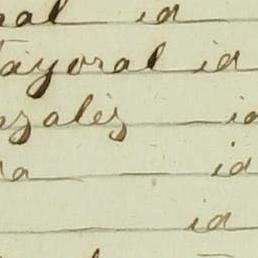 ral id
Tayoral id
nzalez id
ra id
id